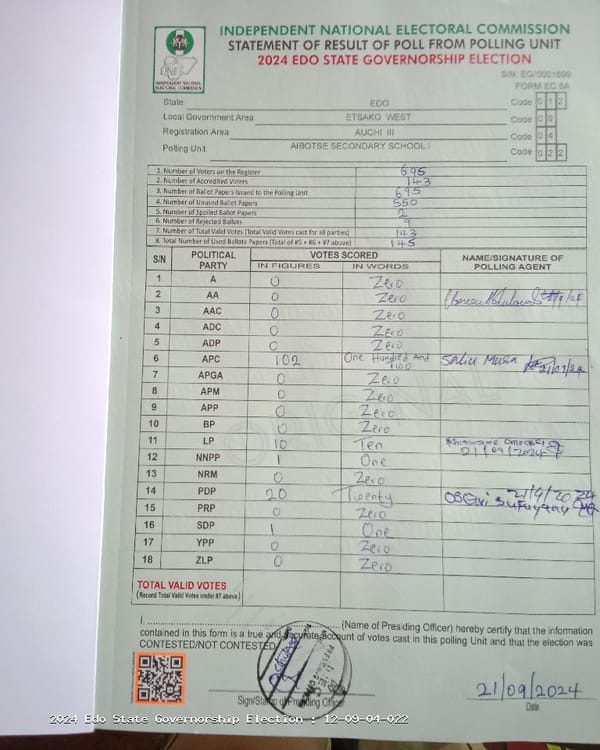 INDEPENDENT NATIONAL ELECTORAL COMMISSION
STATEMENT OF RESULT OF POLL FROM POLLING UNIT
2024 EDO STATE GOVERNORSHIP ELECTION
INDEPENDENT NATIONAL
ELECTORAL COMMISSION
S/N: EG/0001699
FORM EC 8A
State EDO Code 0 1 2
Local Government Area ETSAKO WEST Code 0 9
Registration Area AUCHI III Code 0 4
Polling Unit AIBOTSE SECONDARY SCHOOL I Code 0 2 2
1. Number of Voters on the Register 695
2. Number of Accredited Voters 143
3. Number of Ballot Papers Issued to the Polling Unit 695
4. Number of Unused Ballot Papers 550
5. Number of Spoiled Ballot Papers 2
6. Number of Rejected Ballots 9
7. Number of Total Valid Votes (Total Valid Votes cast for all parties) 143
8. Total Number of Used Ballots Papers (Total of #5 + #6 + #7 above) 145
S/N POLITICAL PARTY VOTES SCORED NAME/SIGNATURE OF POLLING AGENT
IN FIGURES IN WORDS
1 A 0 Zero
2 AA 0 Zero
3 AAC 0 Zero
4 ADC 0 Zero
5 ADP 0 Zero
6 APC 102 One Hundred And Two Saliu Musa 21/09/24
7 APGA 0 Zero
8 APM 0 Zero
9 APP 0 Zero
10 BP 0 Zero
11 LP 10 Ten 21/09/2024
12 NNPP 1 One
13 NRM 0 Zero
14 PDP 20 Twenty 21/9/2024
15 PRP 0 Zero
16 SDP 1 One
17 YPP 0 Zero
18 ZLP 0 Zero
TOTAL VALID VOTES
(Record Total Valid Votes under #7 above)
I. (Name of Presiding Officer) hereby certify that the information
contained in this form is a true and accurate account of votes cast in this polling Unit and that the election was
CONTESTED/NOT CONTESTED.
21/09/2024
Sign/Stamp of Presiding Officer Date
2024 Edo State Governorship Election : 12-09-04-022